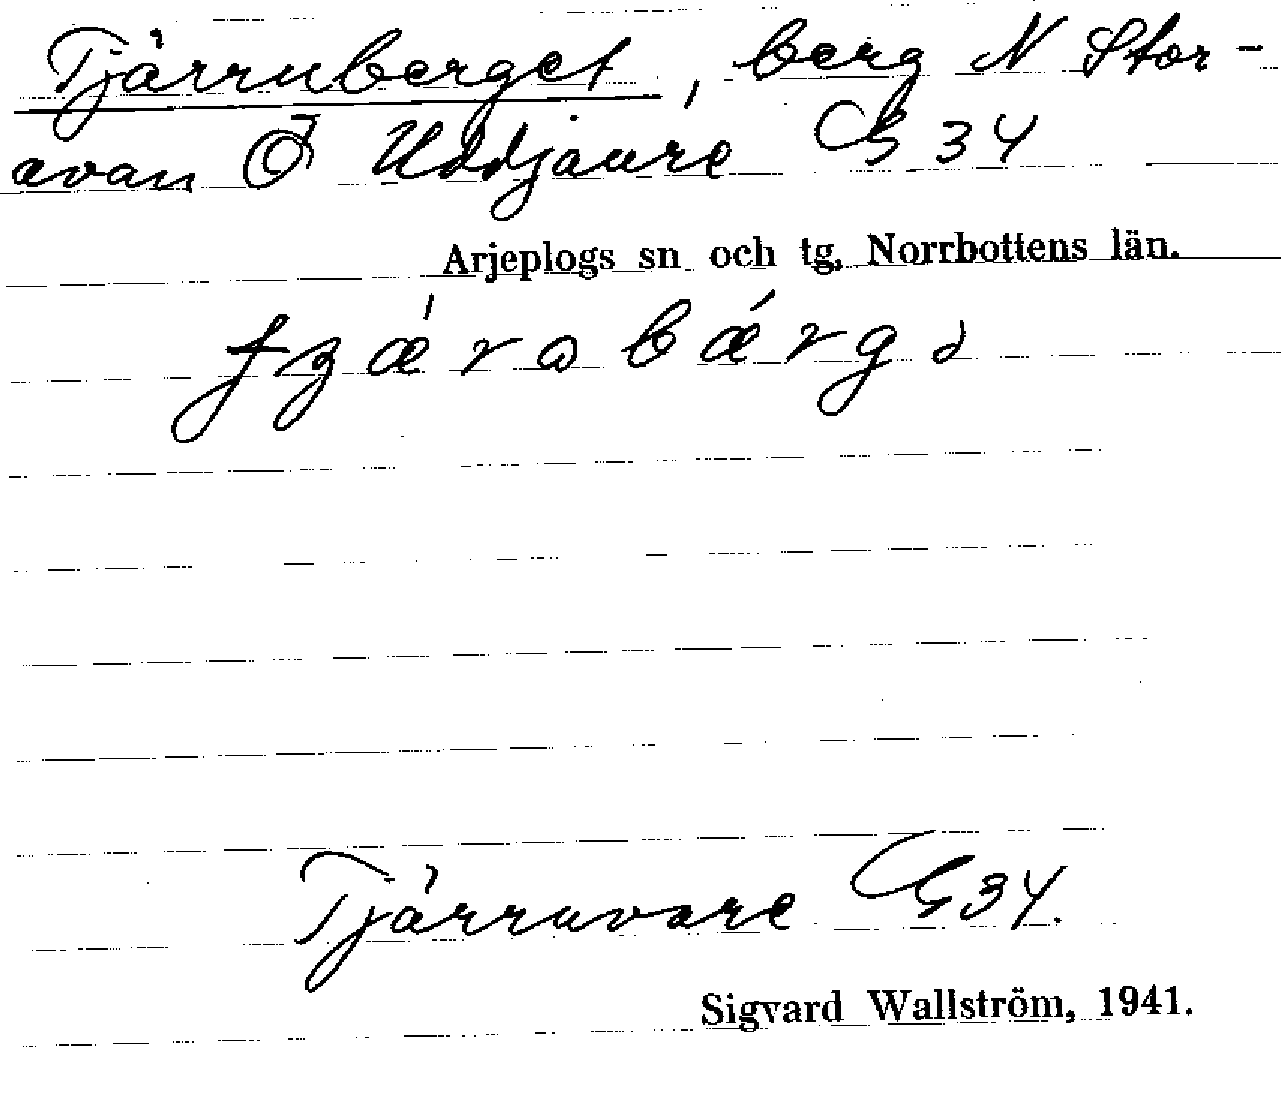 Tjärruberget, berg N Stor-
avan Ö Uddjaure G34
Arjeplogs sn och tg, Norrbottens län.
Tjärruvare G34.
Sigvard Wallström, 1941.